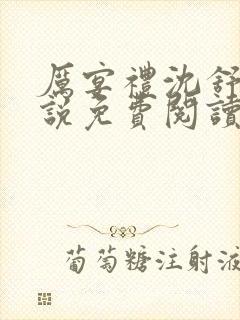 厲宴禮沈舒
説免費閱讀
葡萄糖注射液